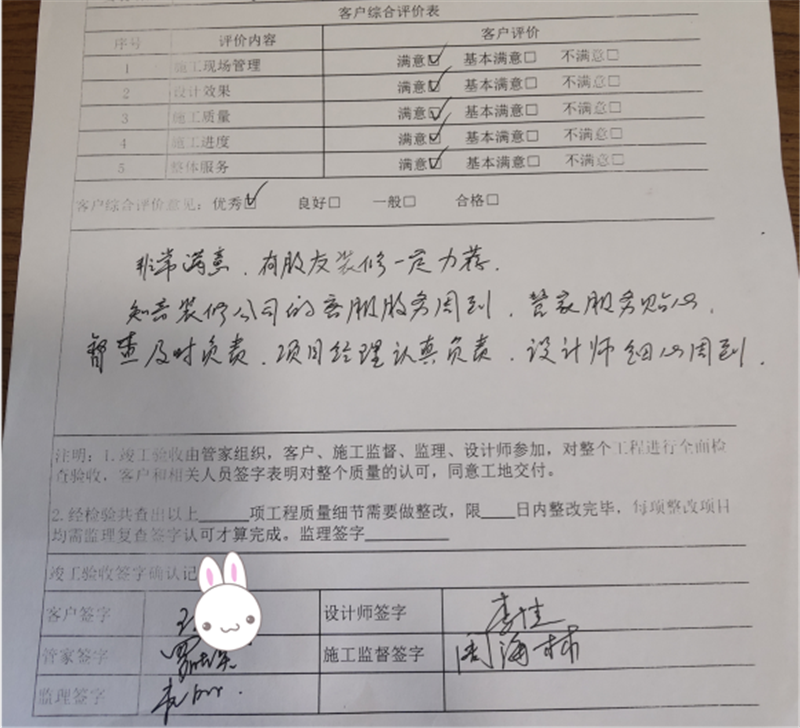 客户综合评价表
序号 评价内容 客户评价
1 施工现场管理 满意☑ 基本满意□ 不满意□
2 设计效果 满意☑ 基本满意□ 不满意□
3 施工质量 满意☑ 基本满意□ 不满意□
4 施工进度 满意☑ 基本满意□ 不满意□
5 整体服务 满意☑ 基本满意□ 不满意□
客户综合评价意见：优秀☑ 良好□ 一般□ 合格□
非常满意，有朋友装修一定力荐.
知音装修公司的客服服务周到，管家服务贴心，
督查及时负责，项目经理认真负责，设计师细心周到.
注明：1.竣工验收由管家组织，客户、施工监督、监理、设计师参加，对整个工程进行全面检
查验收，客户和相关人员签字表明对整个质量的认可，同意工地交付。
2.经检验共查出以上______项工程质量细节需要做整改，限____日内整改完毕，每项整改项目
均需监理复查签字认可才算完成。监理签字__________
竣工验收签字确认记
客户签字 设计师签字 李佳
管家签字 施工监督签字 周海林
监理签字